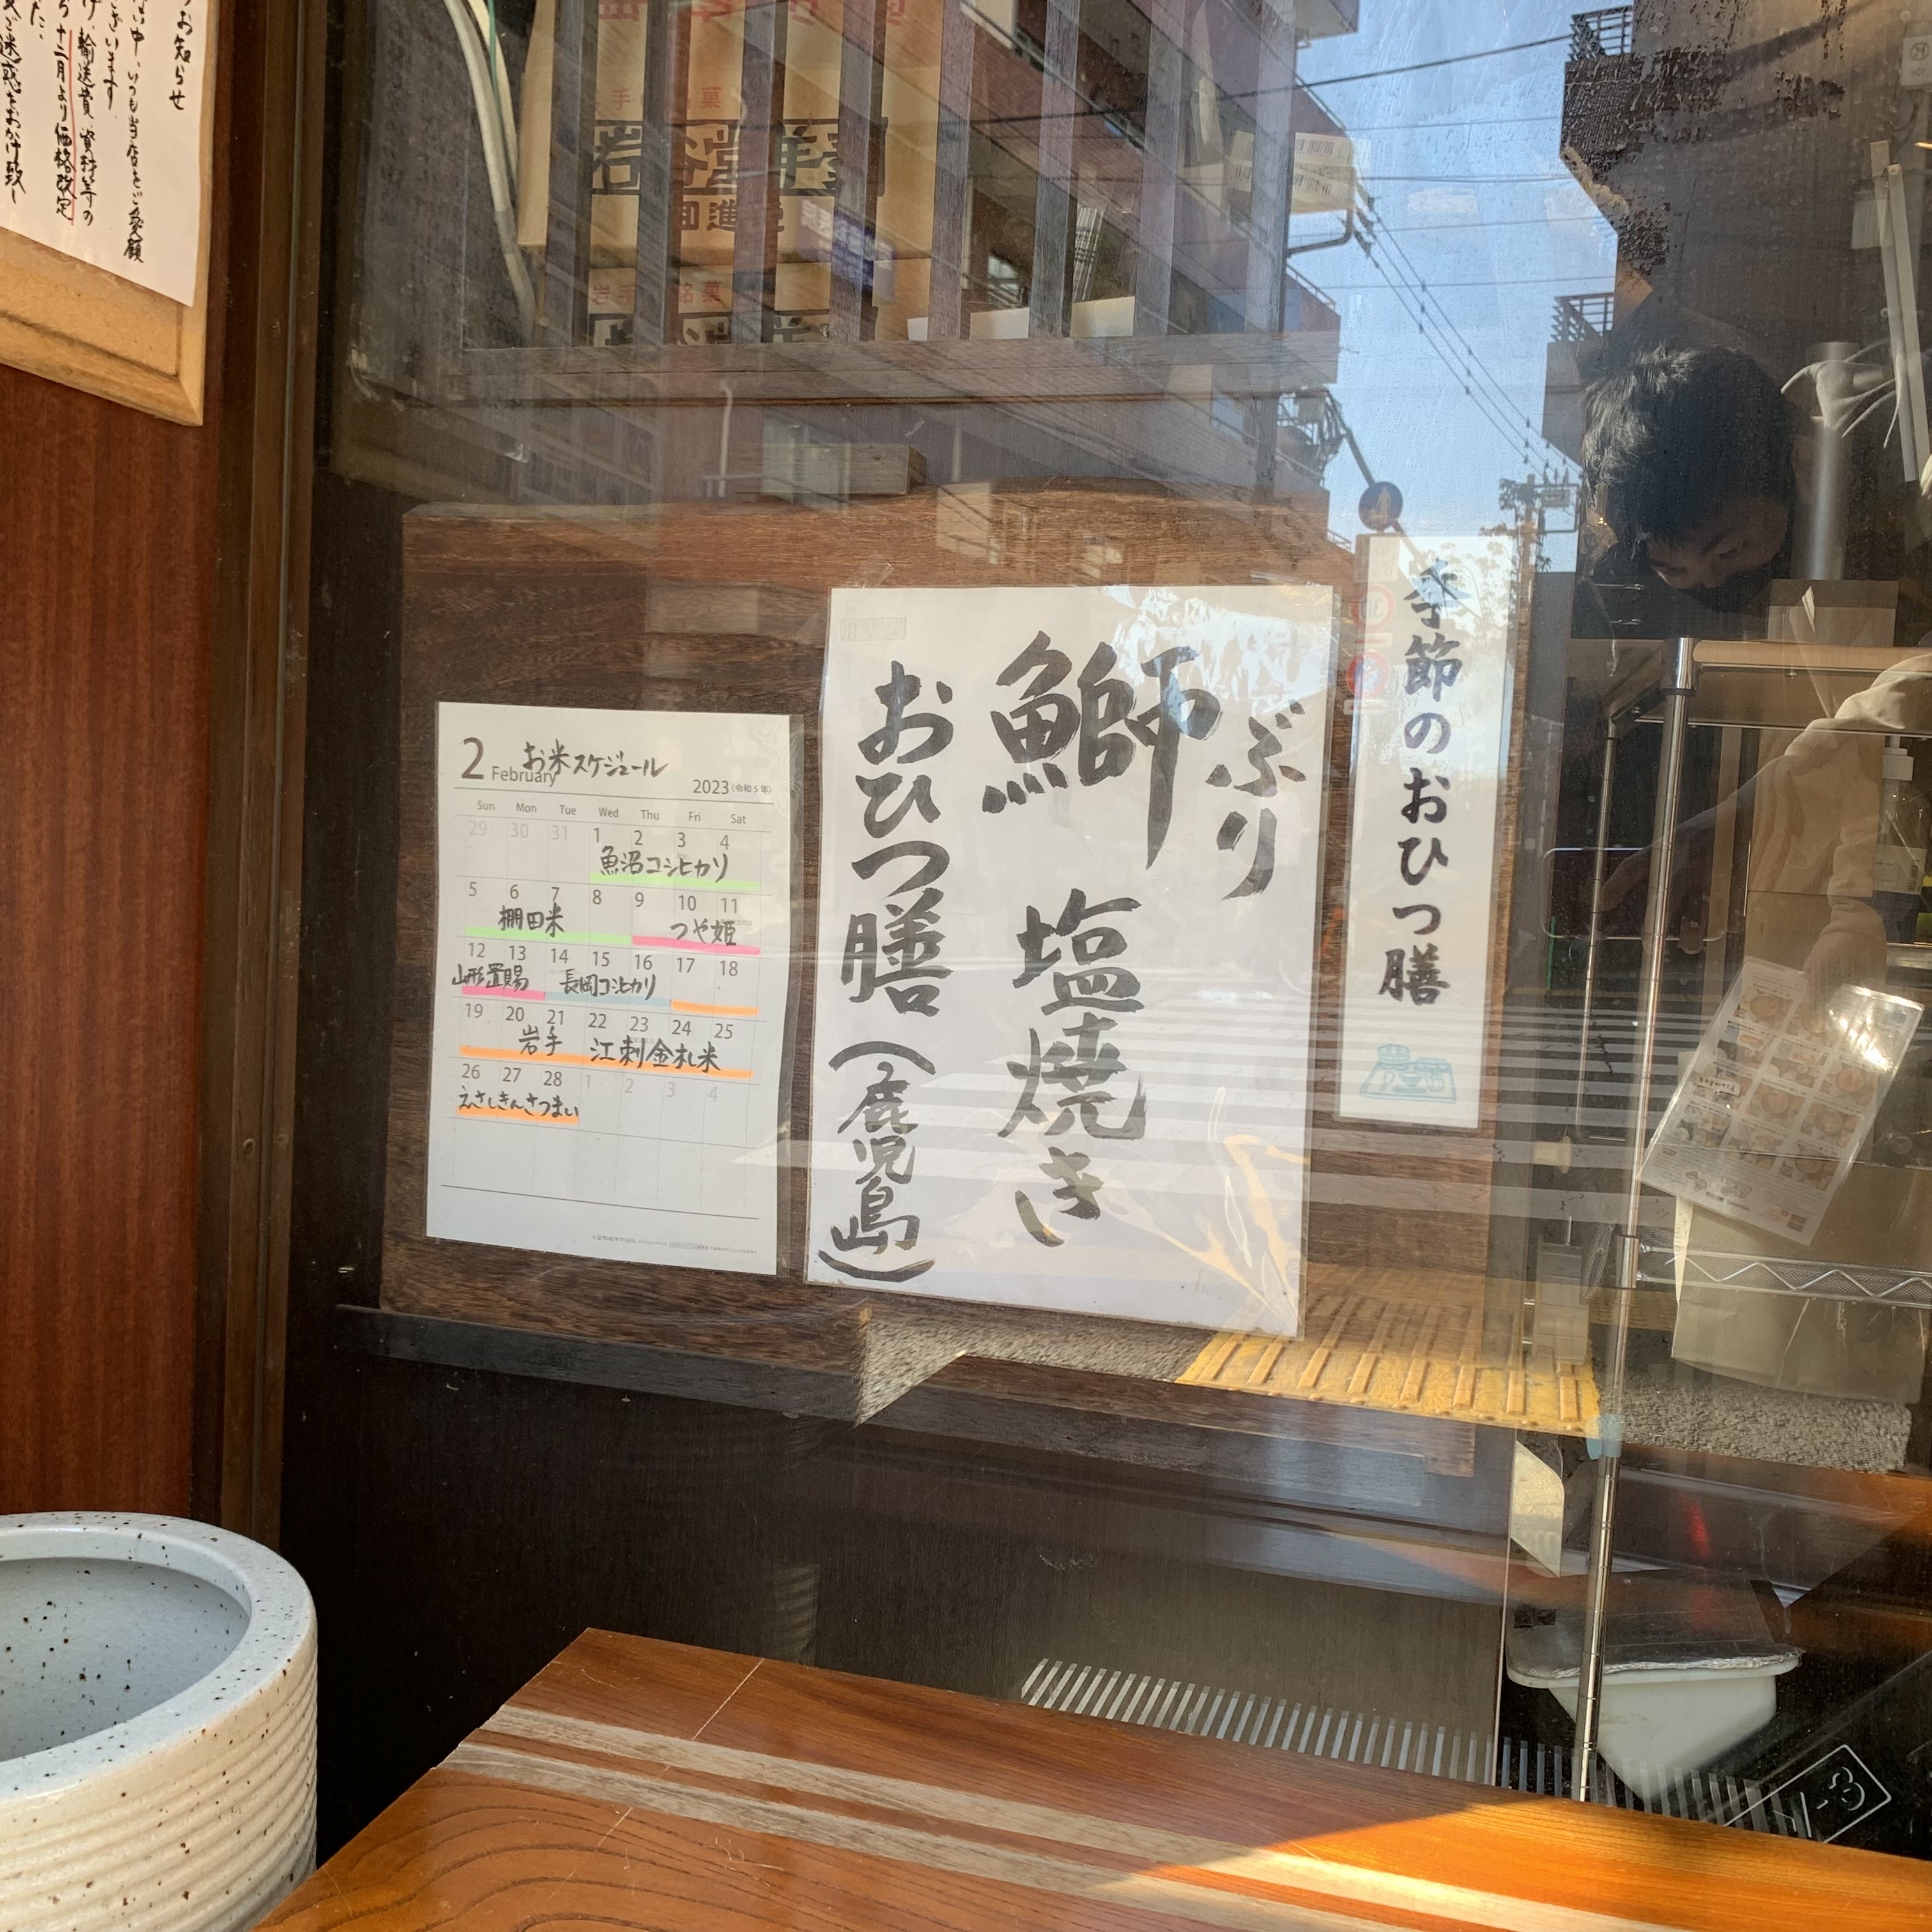 お知らせ
い中、いつも当店をご愛顧
ございます。
輸送費、資材等の
十二月より価格改定
ご迷惑をおかけ致し
た。
岩谷堂羊羹
回進堂
岩手銘菓
季節のおひつ膳
ぶり
鰤 塩焼き
おひつ膳(鹿児島)
2 February お米スケジュール
2023 (令和5年)
Sun Mon Tue Wed Thu Fri Sat
29 30 31 1 2 3 4
魚沼コシヒカリ
5 6 7 8 9 10 11
棚田米 つや姫
12 13 14 15 16 17 18
山形置賜 長岡コシヒカリ
19 20 21 22 23 24 25
岩手 江刺金札米
26 27 28 1 2 3 4
えさしきんさつまい